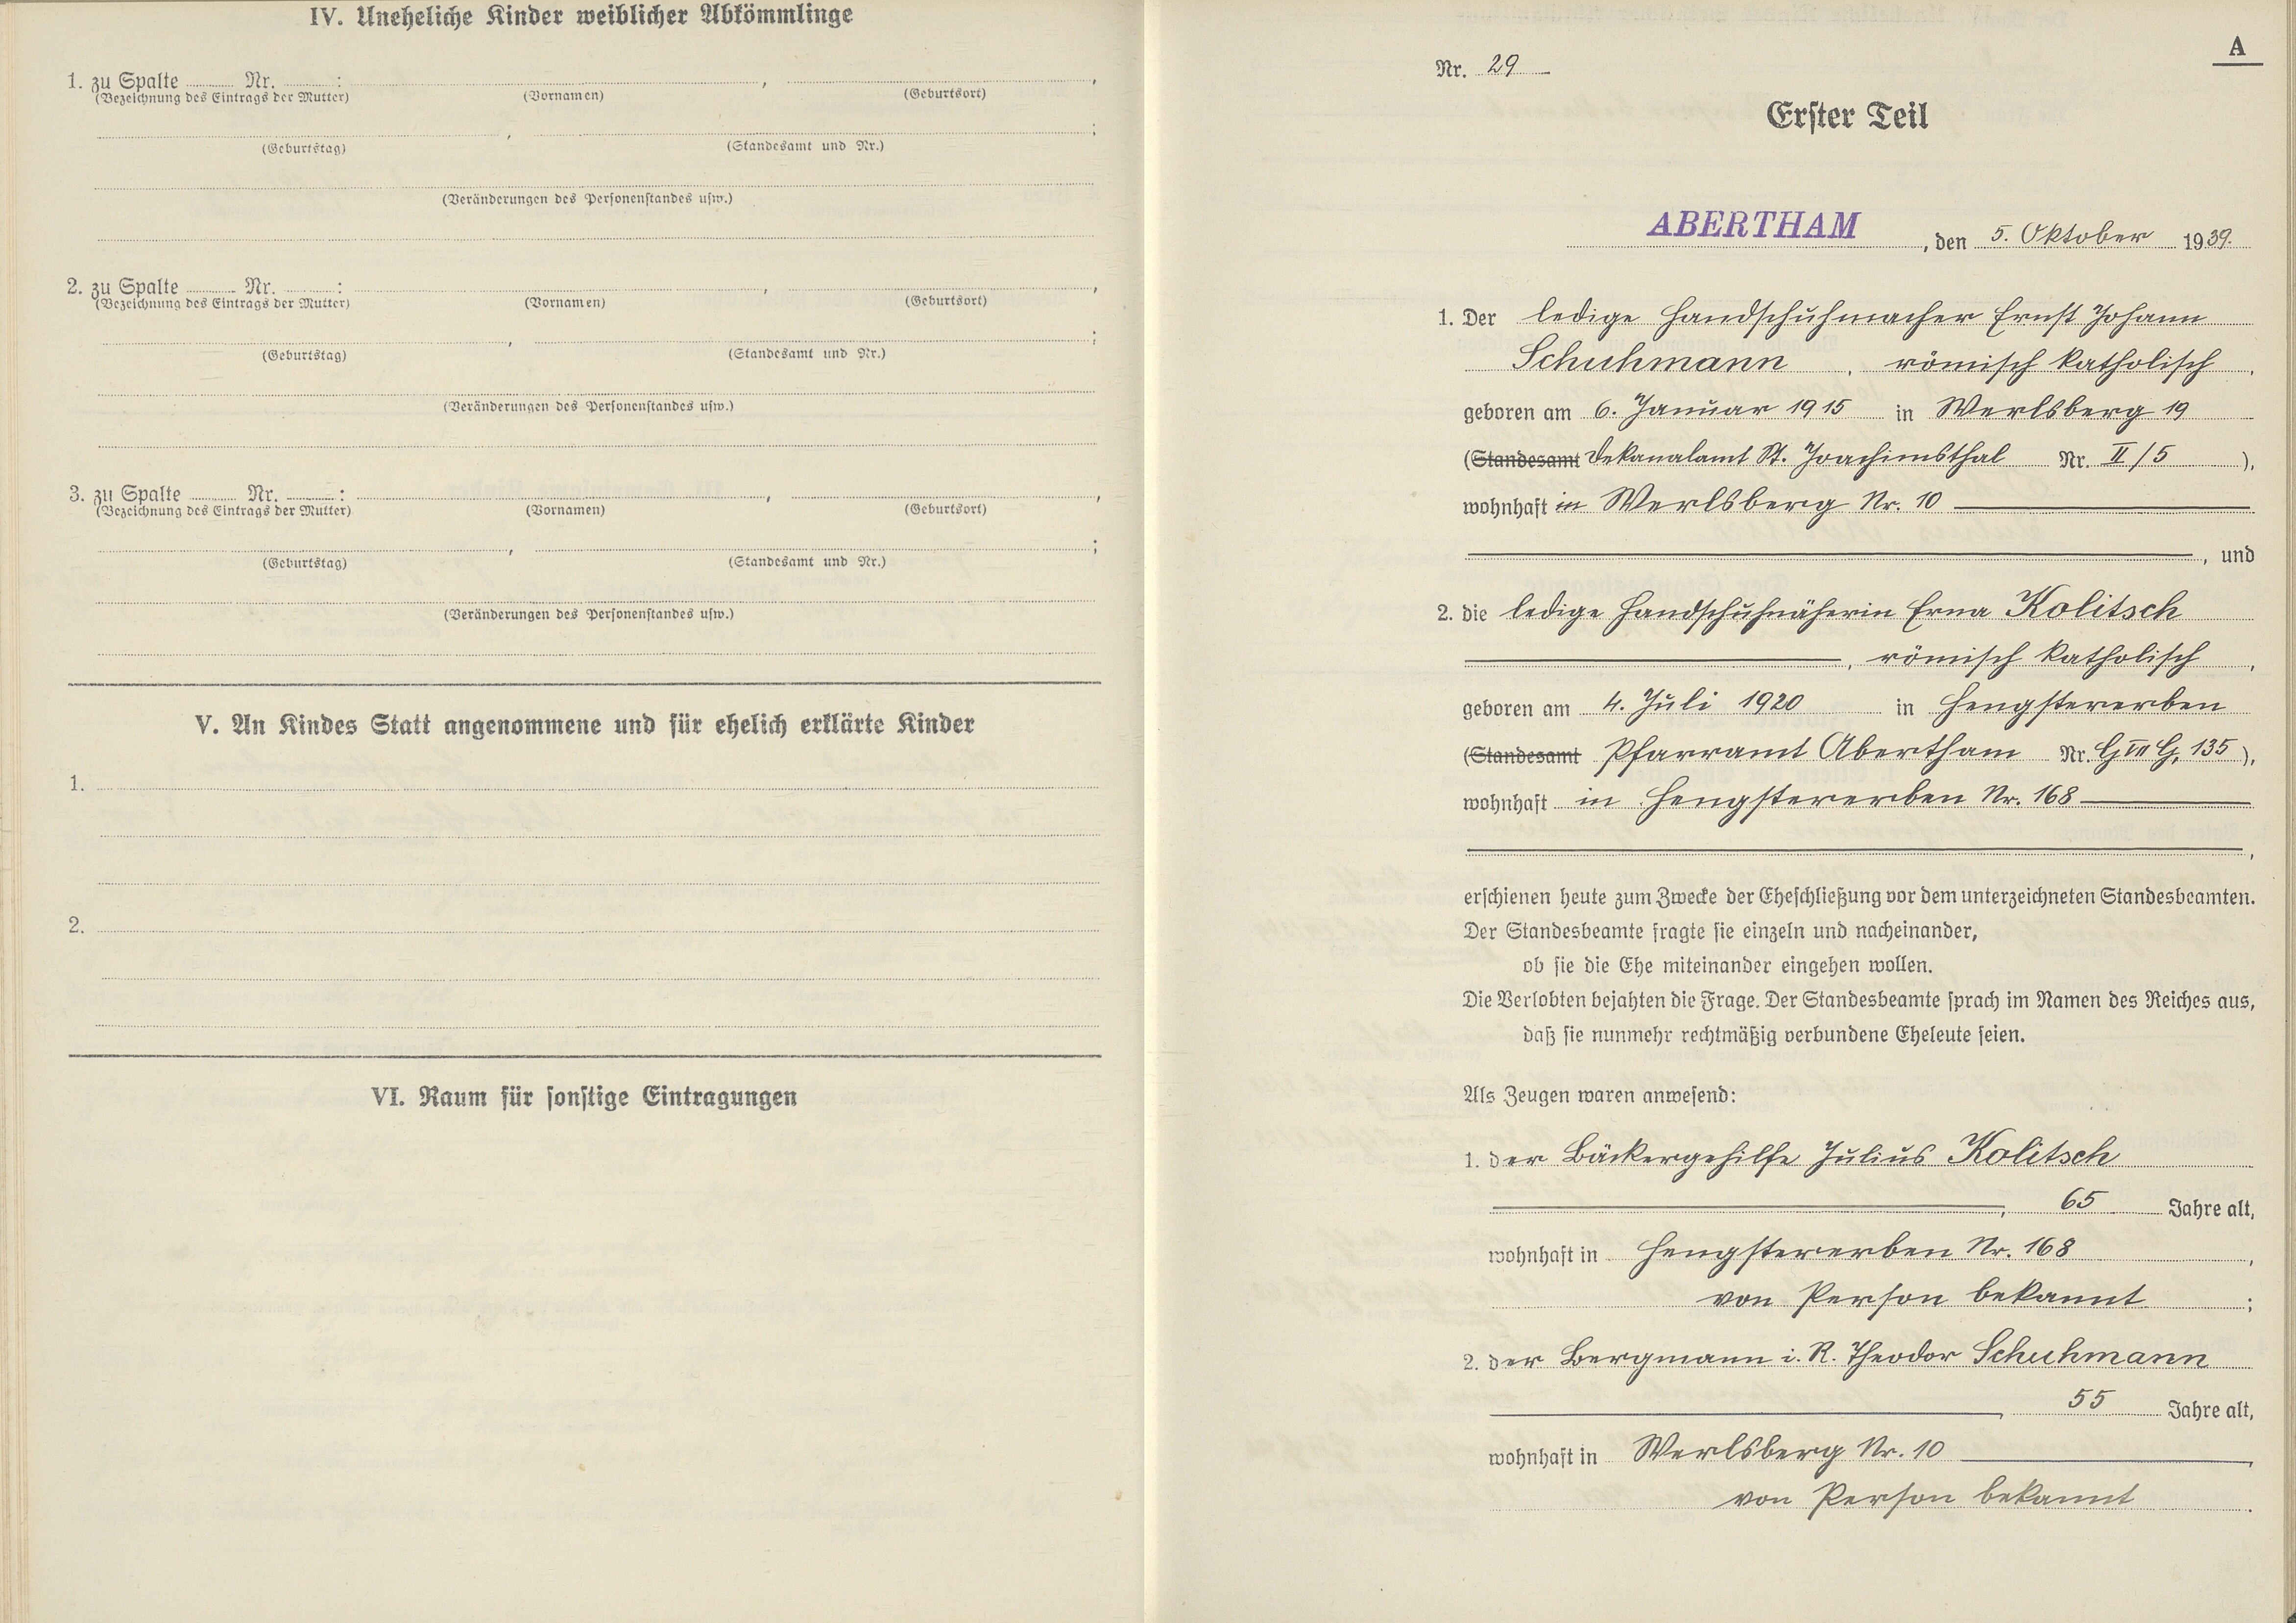 IV. Uneheliche Kinder weiblicher Abkömmlinge
1. zu Spalte ........ Nr. ........ : ........ , ........ ,
(Bezeichnung des Eintrags der Mutter) (Vornamen) (Geburtsort)
........ , ........ ;
(Geburtstag) (Standesamt und Nr.)
(Veränderungen des Personenstandes usw.)
2. zu Spalte ........ Nr. ........ : ........ , ........ ,
(Bezeichnung des Eintrags der Mutter) (Vornamen) (Geburtsort)
........ , ........ ;
(Geburtstag) (Standesamt und Nr.)
(Veränderungen des Personenstandes usw.)
3. zu Spalte ........ Nr. ........ : ........ , ........ ,
(Bezeichnung des Eintrags der Mutter) (Vornamen) (Geburtsort)
........ , ........ ;
(Geburtstag) (Standesamt und Nr.)
(Veränderungen des Personenstandes usw.)
V. An Kindes Statt angenommene und für ehelich erklärte Kinder
1.
2.
VI. Raum für sonstige Eintragungen
A
Nr. 29
Erster Teil
ABERTHAM, den 5. Oktober 1939.
1. Der ledige Handschuhmacher Ernst Johann
Schuhmann, römisch katholisch,
geboren am 6. Januar 1915 in Werlsberg 19
(Standesamt Dekanalamt St. Joachimsthal Nr. II/5),
wohnhaft in Werlsberg Nr. 10
, und
2. die ledige Handschuhnäherin Erna Kolitsch
, römisch katholisch,
geboren am 4. Juli 1920 in Hengstererben
(Standesamt Pfarramt Abertham Nr. 135),
wohnhaft in Hengstererben Nr. 168
,
erschienen heute zum Zwecke der Eheschließung vor dem unterzeichneten Standesbeamten.
Der Standesbeamte fragte sie einzeln und nacheinander,
ob sie die Ehe miteinander eingehen wollen.
Die Verlobten bejahten die Frage. Der Standesbeamte sprach im Namen des Reiches aus,
daß sie nunmehr rechtmäßig verbundene Eheleute seien.
Als Zeugen waren anwesend:
1. der Bäckergehilfe Julius Kolitsch
, 65 Jahre alt,
wohnhaft in Hengstererben Nr. 168,
von Person bekannt;
2. der Bergmann i. R. Theodor Schuhmann
, 55 Jahre alt,
wohnhaft in Werlsberg Nr. 10,
von Person bekannt.